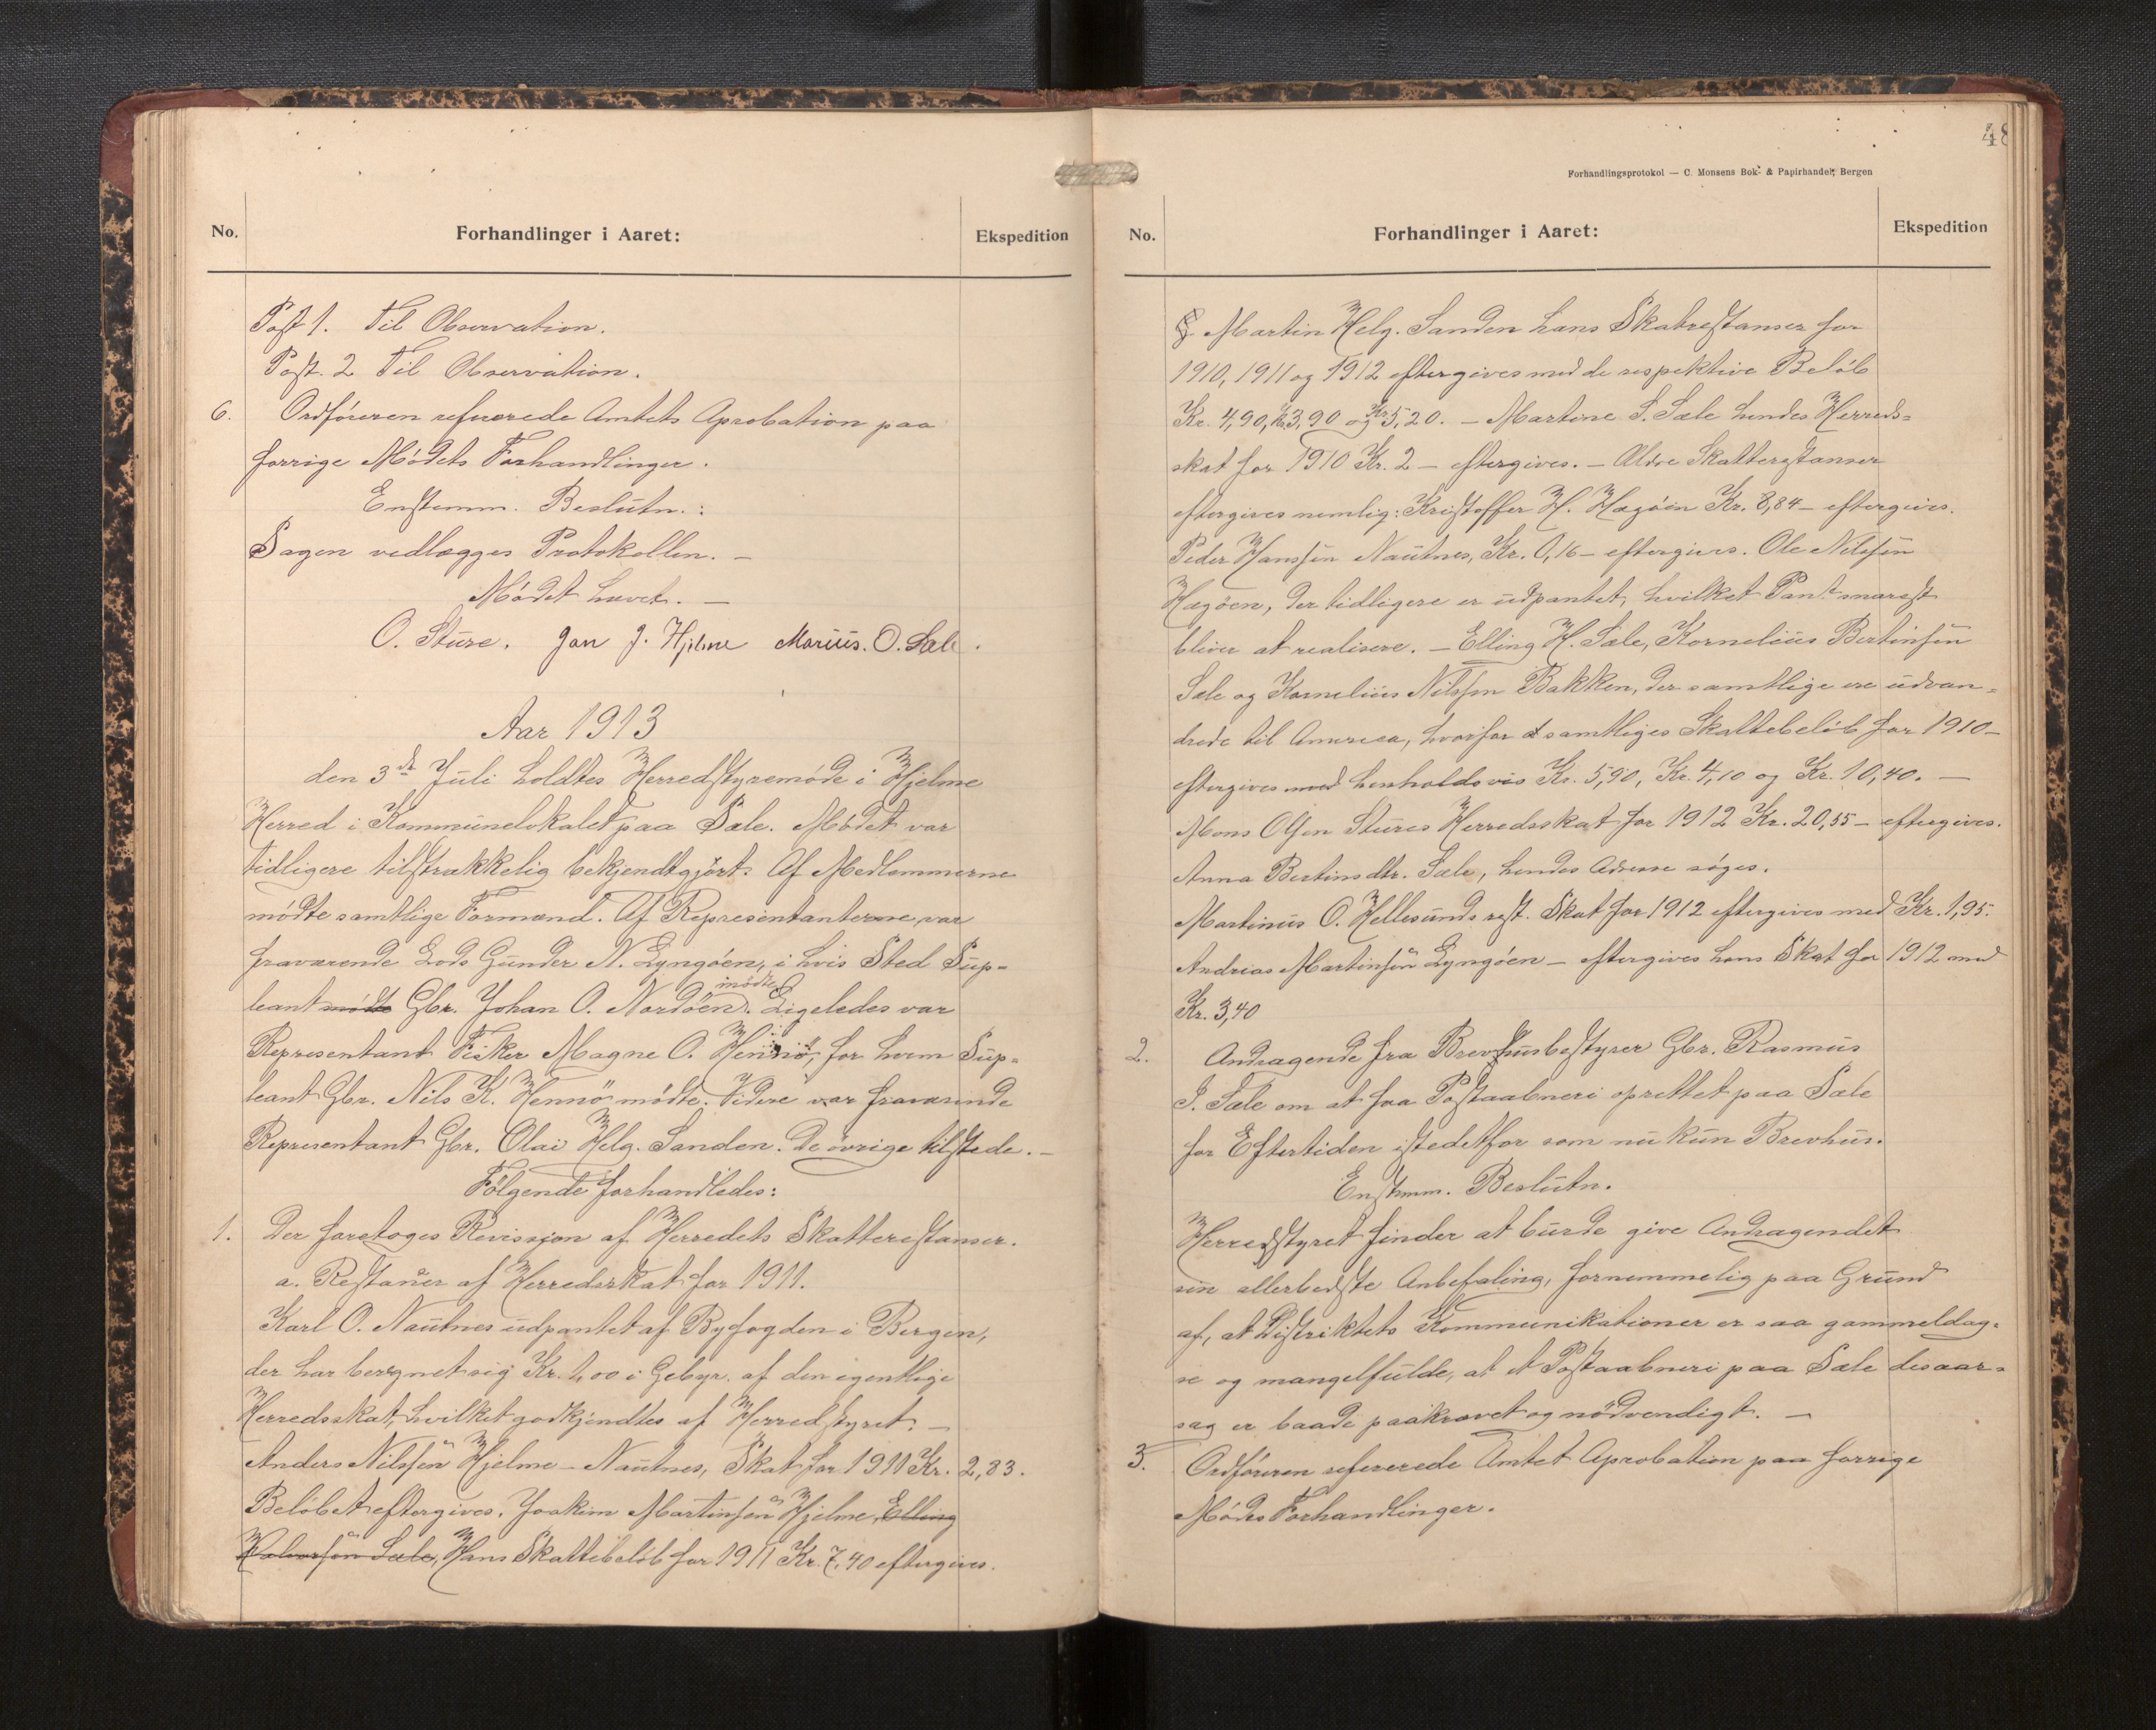 No.
Forhandlinger i Aaret:
Ekspedition
Post 1. Til Observation.
Post. 2 Til Observation.
6. Ordføreren refuerede Amtets Aprobation paa
forrige Mødets Forhandlinger.
Enstemm. Beslutn.:
Sagen vedlægges Protokollen. —
Mødet hævet. —
O. Sture. Jan J. Hjelme Marius. O. Sæle.
Aar 1913
den 3de Juli holdtes Herredstyremøde i Hjelme
Herred i Kommunelokalet paa Sæle. Mødet var
tidligere tilstrækkelig bekjendtgjørt. Af Medlemmerne
mødte samtlige Formænd. Af Representanterne, var
fraværende Lods Gunder N. Lyngøen, i hvis Sted Sup-
leant mødte Gbr. Johan O. Nordøen mødte. Ligeledes var
Representant Fisker Magne O. Hennø, for hvem Sup-
leant Gbr. Nils K. Hennø mødte. Videre var fraværende
Representant Gbr. Olai Helg. Sanden. De øvrige tilstede. —
Følgende forhandledes:
1. Der foretoges Revissjon af Herredets Skatterestanser.
a. Restanser af Herredsskat for 1911.
Karl O. Nautnes udpantet af Byfogden i Bergen,
der har beregnet sig Kr. 1,00 i Gebyr. af den egentlige
Herredsskat, hvilket godkjendtes af Herredstyret. —
Anders Nilssøn Hjelme - Nautnes, Skat for 1911 Kr. 2,83.
Beløbet eftergives. Joakim Martinsøn Hjelme, Elling
Halvorsøn Sæle, Hans Skattebeløb for 1911 Kr. 7,40 eftergives.
48
Forhandlingsprotokol — C. Monsens Bok- & Papirhandel, Bergen
No.
Forhandlinger i Aaret:
Ekspedition
Martin Helg. Sanden hans Skatrestanser for
1910, 1911 og 1912 eftergives med de respektive Beløb
Kr. 4,90, Kr. 3,90 og Kr. 5,20. — Martine S. Sæle hendes Herreds-
skat for 1910 Kr. 2 — eftergives. — Aldre Skatterestanser
eftergives nemlig: Kristoffer H. Hægøin Kr. 8,84 — eftergives.
Peder Hanssøn Nautnes, Kr. 0,16 — eftergives. Ole Nilssøn
Hægøen, der tidligere er udpantet, hvilket Pant snarest
bliver at realisere. — Elling H. Sæle, Kornelius Bertinsøn
Sæle og Kornelius Nilssøn Bakken, der samtlige ere udvan-
drede til America, hvorfor samtliges Skattebeløb for 1910 —
eftergives med henholdsvis Kr. 5,90, Kr. 4,10 og Kr. 10,40. —
Mons Olsen Stures Herredsskat for 1912 Kr. 20,55 — eftergives.
Anna Bertinsdtr. Sæle, hendes Adresse søges.
Martinus O. Hellesunds rest. Skat for 1912 eftergives med Kr. 1,95.
Andrias Martinsøn Lyngøen — eftergives hans Skat for 1912 med
Kr. 3,40
2. Andragende fra Brevhusbestyrer Gbr. Rasmus
J. Sæle om at faa Postaabneri oprettet paa Sæle
for Eftertiden istedetfor som nu kun Brevhus.
Enstemm. Beslutn.
Herredstyret finder at burde give Andragendet
sin allerbedste Anbefaling, fornemmelig paa Grund
af, at Distriktets Kommunikationer er saa gammeldag-
se og mangelfulde, at et Postaabneri paa Sæle desaar-
sag er baade paakrævet og nødvendigt. —
3. Ordføreren refererede Amtet Aprobation paa forrige
Mødes Forhandlinger.